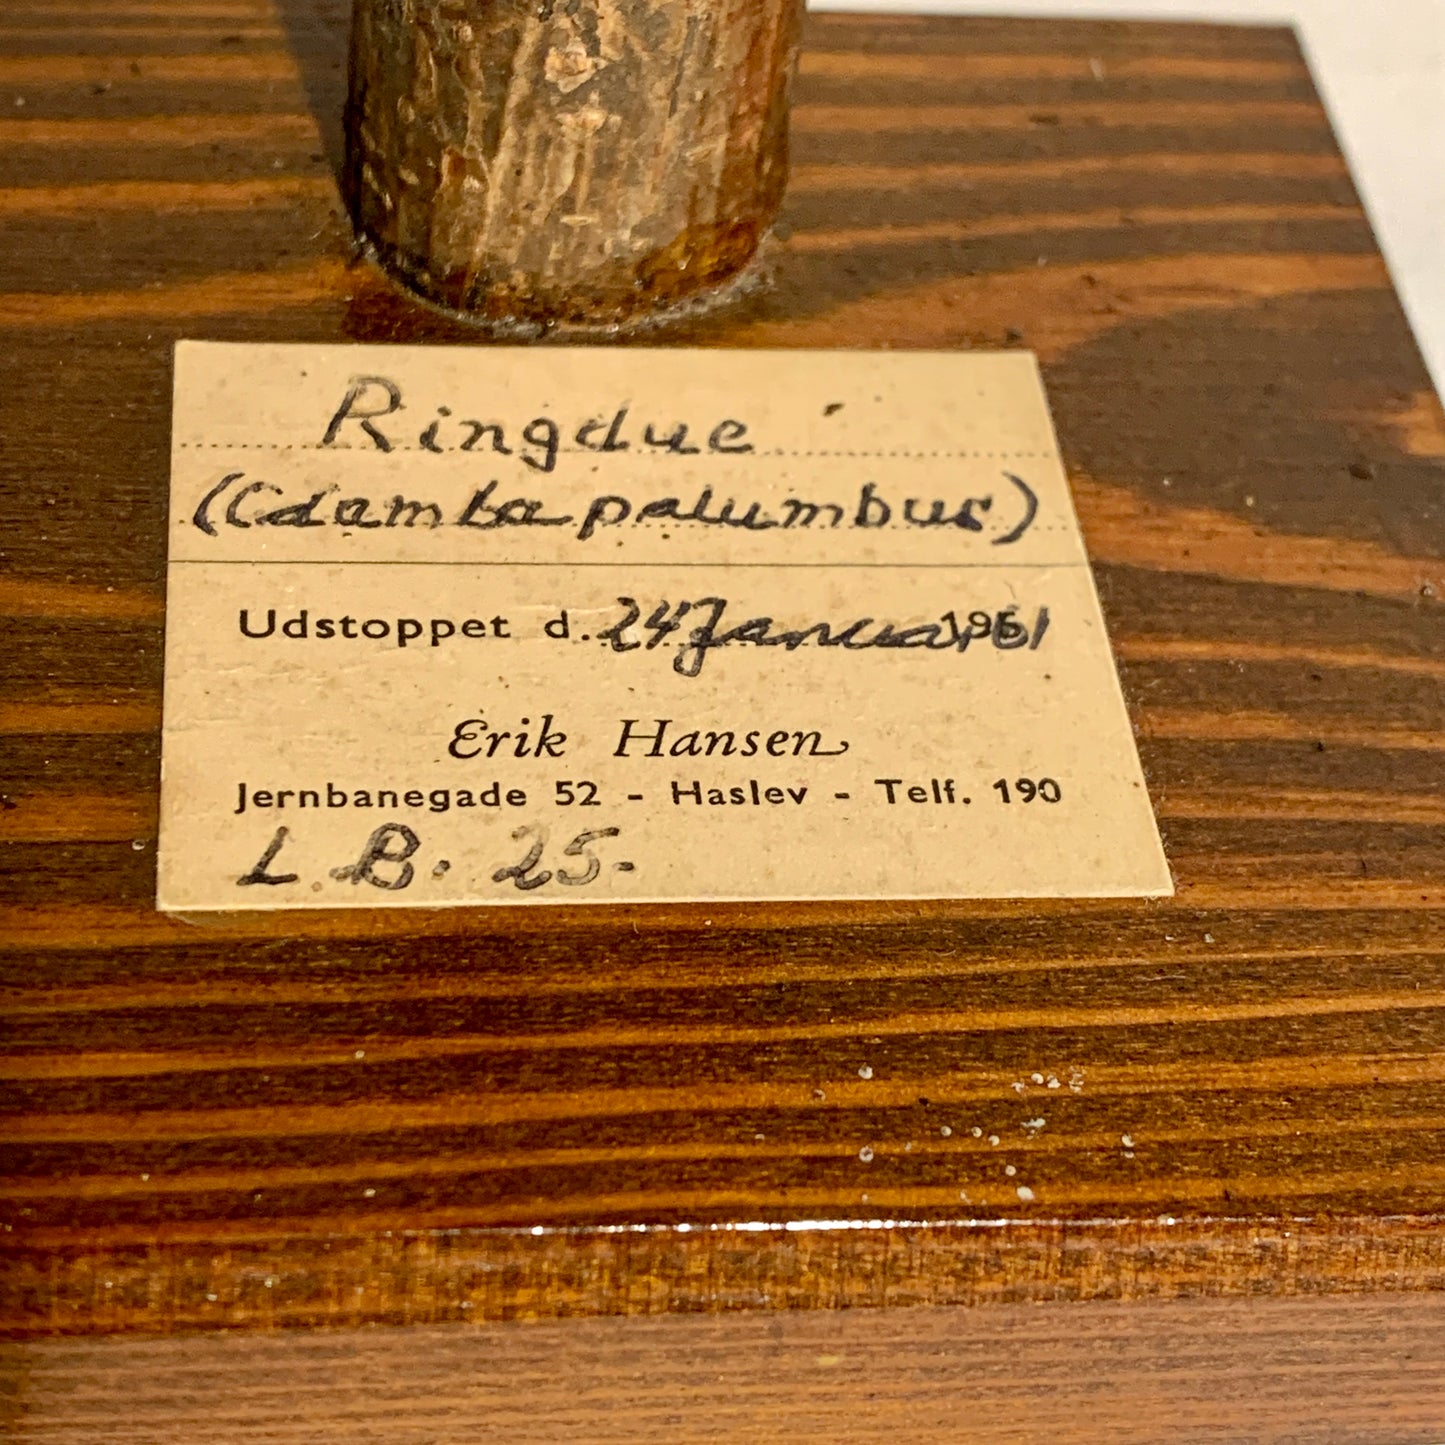 Ringdue
(Columba palumbus)
Udstoppet d. 24 Januar 1961
Erik Hansen
Jernbanegade 52 - Haslev - Telf. 190
L. B. 25.